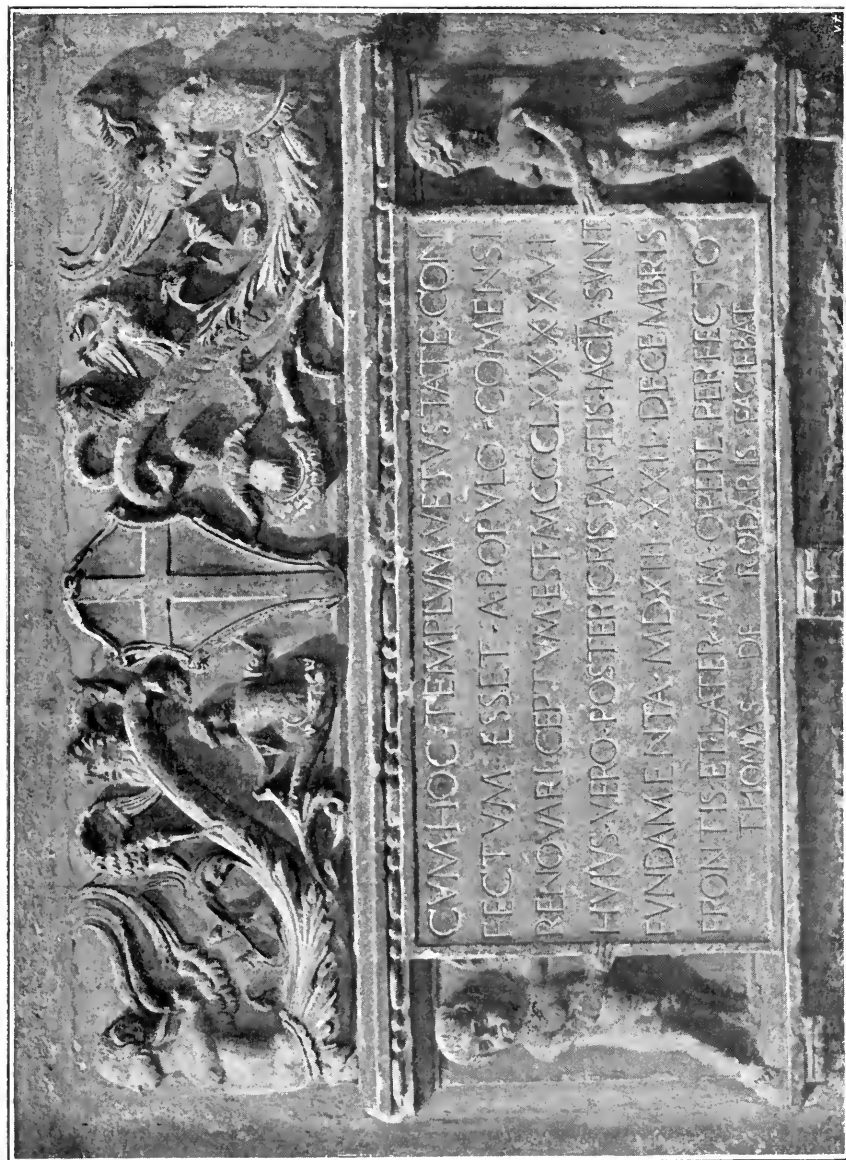 CVM·HOC·TEMPLVM·VETVSTATE·CON
FECTVM·ESSET·A·POPVLO·COMENSI
RENOVARI·CEPTVM·EST·MCCCLXXXXVI
HVIVS·VERO·POSTERIORIS·PARTIS·IACTA·SVNT
FVNDAMENTA·MDXIII·XXII·DECEMBRIS
FRONTIS·ET·LATER·IAM·OPERE·PERFECTO
THOMAS·DE·RODARIS·FACIEBAT